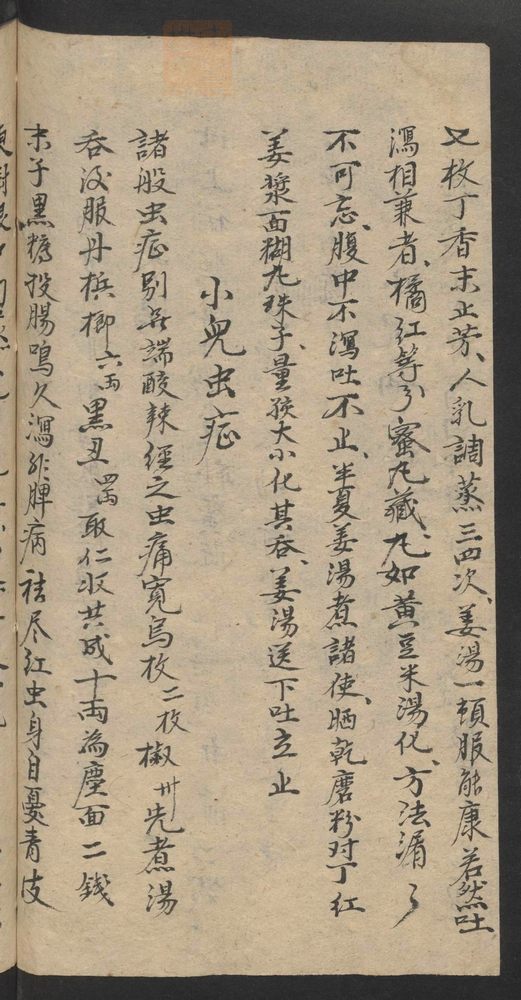 又枚丁香末止芳、人乳調蒸三四次、姜湯一頓服能康若然吐
瀉相兼者、橘紅等分蜜丸藏、丸如黄豆米湯化、方法
不可忘、腹中不瀉吐不止、半夏姜湯煮諸使、晒乾磨粉对丁紅
姜漿面糊丸珠子、量孩大小化其吞、姜湯送下吐立止
小兒虫症
諸般虫症别無端酸辣經之虫痛寬烏枚二枚椒卅先煮湯
吞没服丹槟榔六両黒丑四両取仁収共成十両為塵面二錢
末子黒糖投腸鳴久瀉非脾病 尽紅虫身自憂青皮